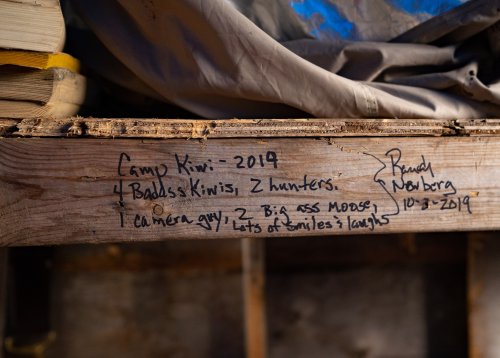 Camp Kiwi - 2019
4 Badass Kiwis, 2 hunters.
1 camera guy, 2 Big ass moose,
Lots of smiles & laughs
Randy
Newberg
10-3-2019